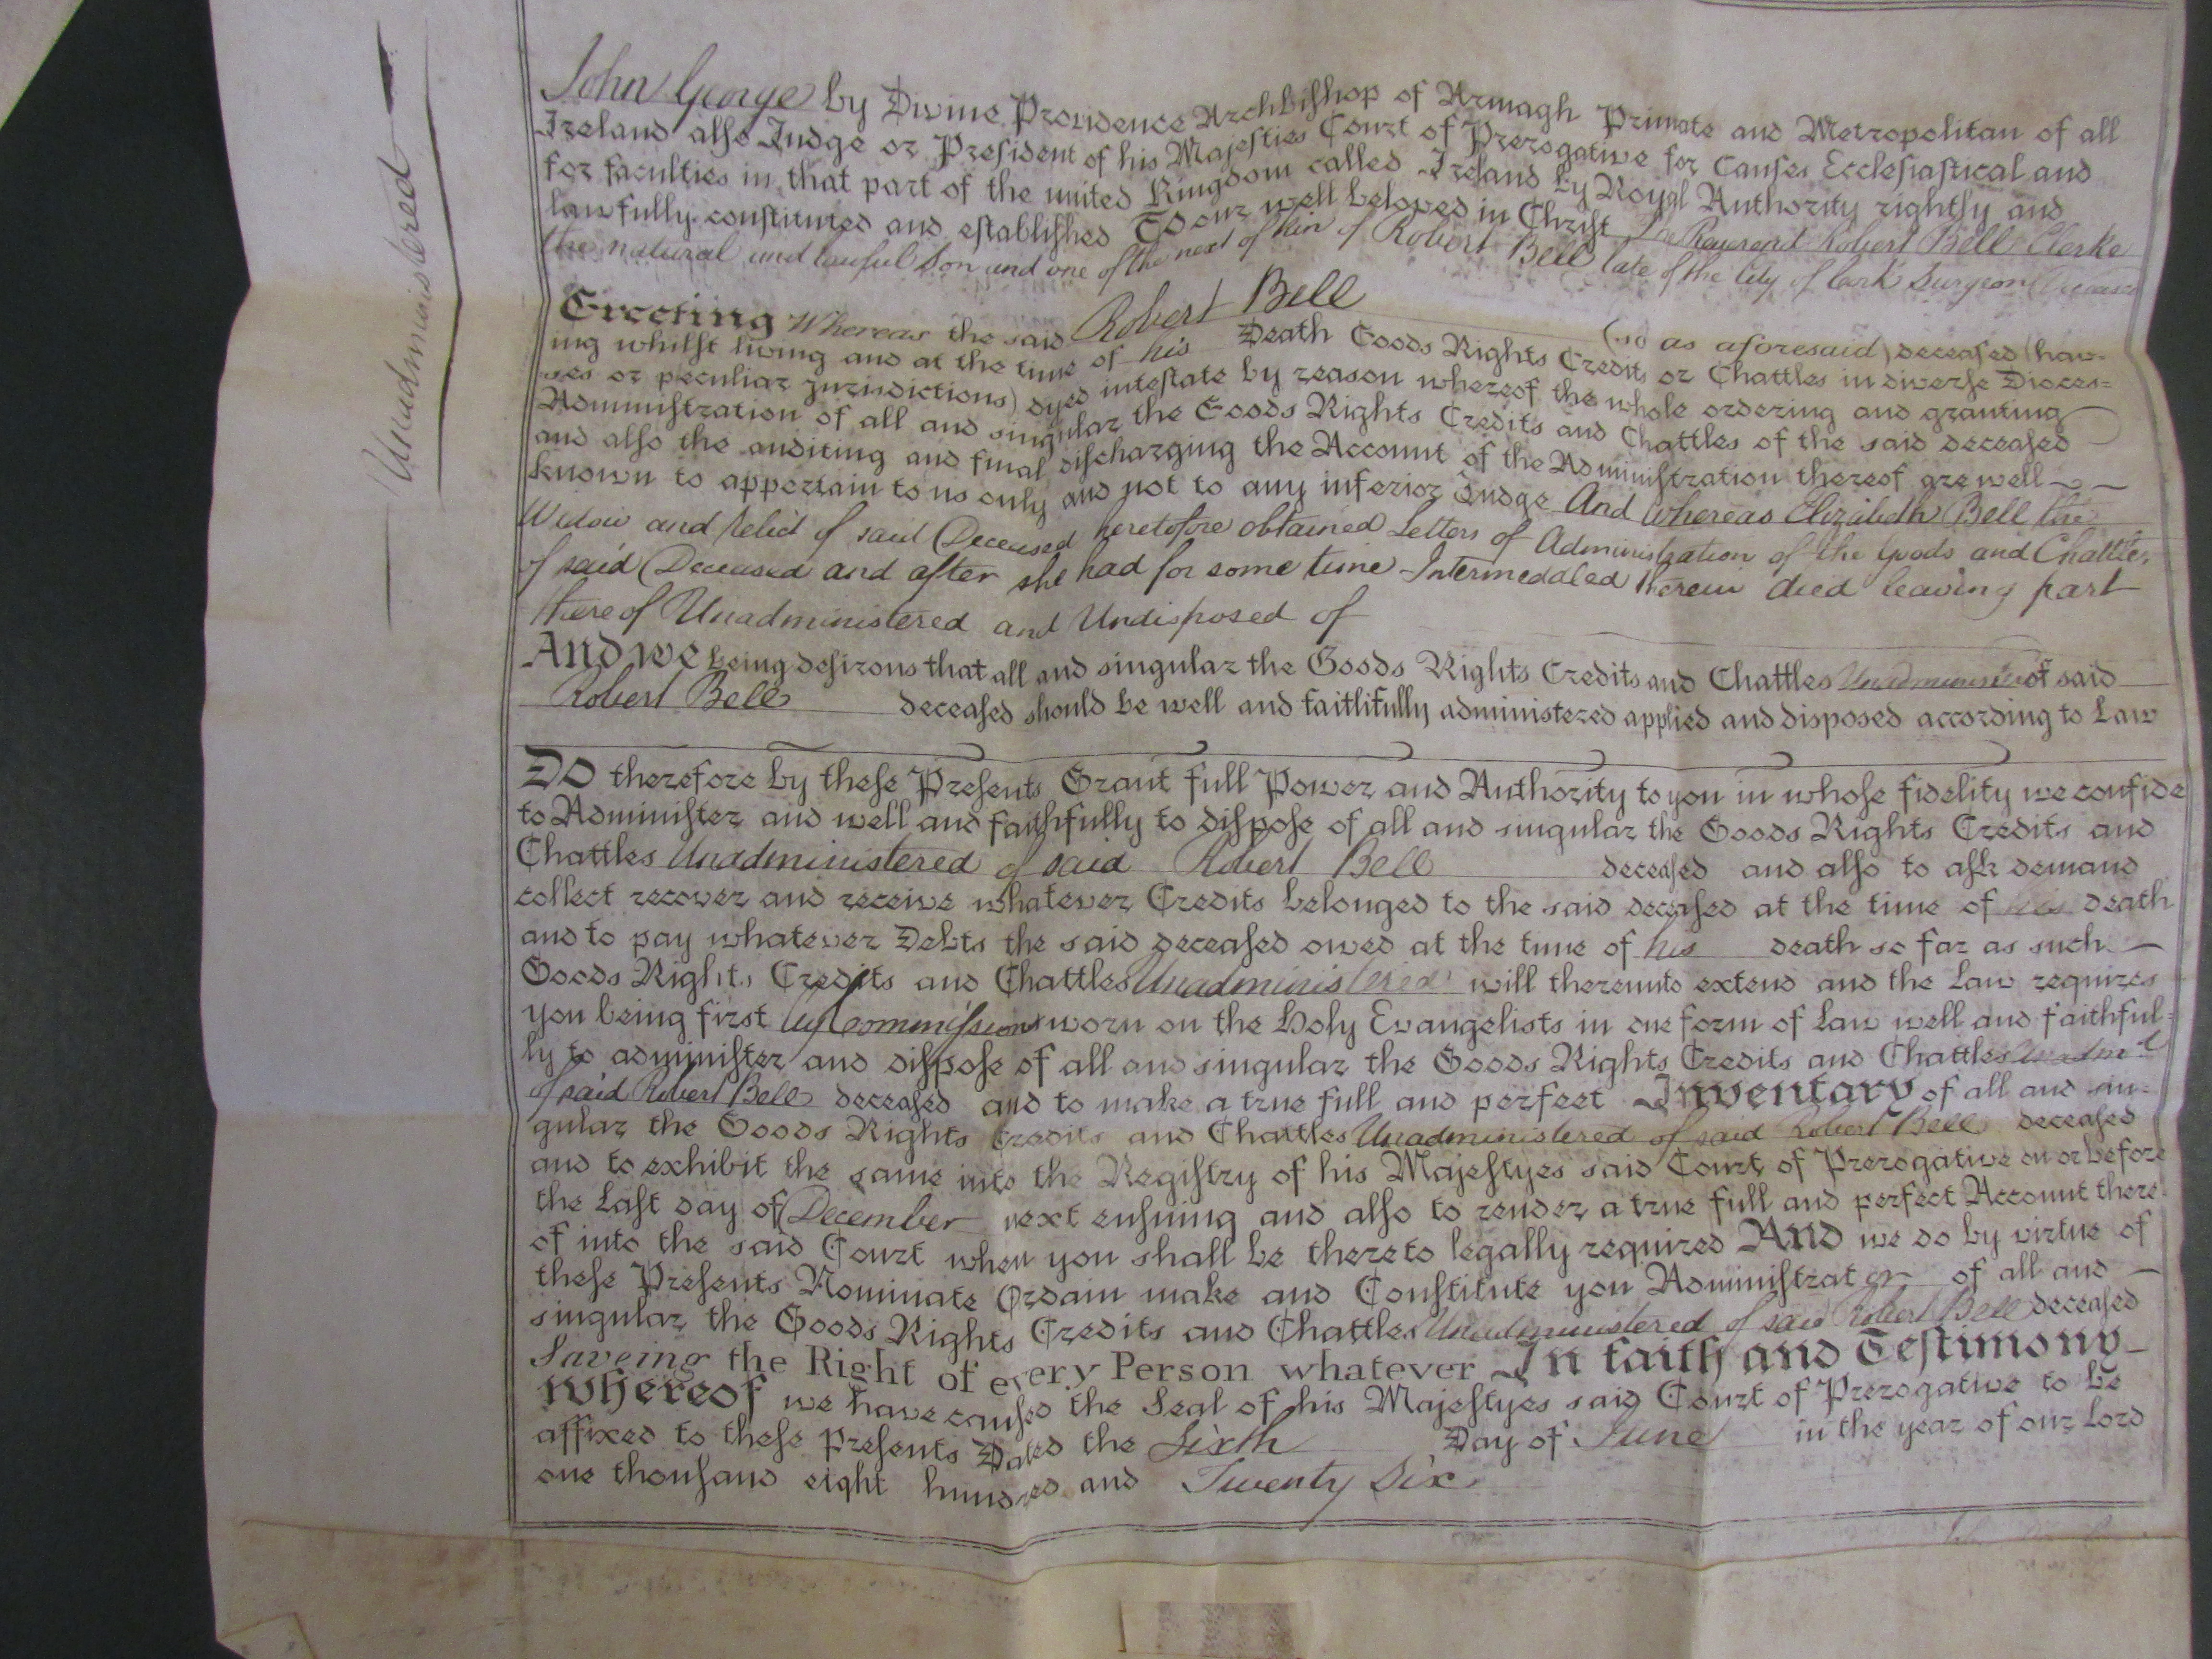 Unadministered
John George by Divine Providence Archbishop of Armagh Primate and Metropolitan of all
Ireland also Judge or President of his Majesties Court of Prerogative for Causes Ecclesiastical and
for faculties in that part of the united Kingdom called Ireland by Royal Authority rightly and
lawfully constituted and established To our well beloved in Christ The Reverend Robert Bell Clerke
the natural and lawful Son and one of the next of kin of Robert Bell late of the City of Cork Surgeon Deceased
Greeting Whereas the said Robert Bell (so as aforesaid) deceased (hav-
ing whilst living and at the time of his Death Goods Rights Credits or Chattles in diverse Dioces=
ses or peculiar jurisdictions) dyed intestate by reason whereof the whole ordering and granting
Administration of all and singular the Goods Rights Credits and Chattles of the said deceased
and also the auditing and final discharging the Account of the Administration thereof are well
known to appertain to us only and not to any inferior Judge And Whereas Elizabeth Bell the
Widow and Relict of said Deceased heretofore obtained Letters of Administration of the Goods and Chattles
of said Deceased and after she had for some time Intermeddled therein died leaving part
thereof Unadministered and Undisposed of
And we being desirous that all and singular the Goods Rights Credits and Chattles of said
Robert Bell deceased should be well and faithfully administered applied and disposed according to Law
Do therefore by these Presents Grant full Power and Authority to you in whose fidelity we confide
to Administer and well and faithfully to dispose of all and singular the Goods Rights Credits and
Chattles Unadministered of said Robert Bell deceased and also to ask demand
collect recover and receive whatever Credits belonged to the said deceased at the time of his death
and to pay whatever Debts the said deceased owed at the time of his death so far as such
Goods Rights Credits and Chattles Unadministered will thereunto extend and the Law requires
you being first by Commission sworn on the Holy Evangelists in due form of Law well and faithful-
ly to administer and dispose of all and singular the Goods Rights Credits and Chattles
of said Robert Bell deceased and to make a true full and perfect Inventary of all and sin-
gular the Goods Rights Credits and Chattles Unadministered of said Robert Bell deceased
and to exhibit the same into the Registry of his Majestyes said Court of Prerogative on or before
the Last day of December next ensuing and also to render a true full and perfect Account there-
of into the said Court when you shall be thereto legally required And we do by virtue of
these Presents Nominate Ordain make and Constitute you Administrator of all and
singular the Goods Rights Credits and Chattles Unadministered of said Robert Bell deceased
Saveing the Right of every Person whatever In faith and Testimony
whereof we have caused the Seal of his Majestyes said Court of Prerogative to be
affixed to these Presents Dated the Sixth Day of June in the year of our Lord
one thousand eight hundred and Twenty Six